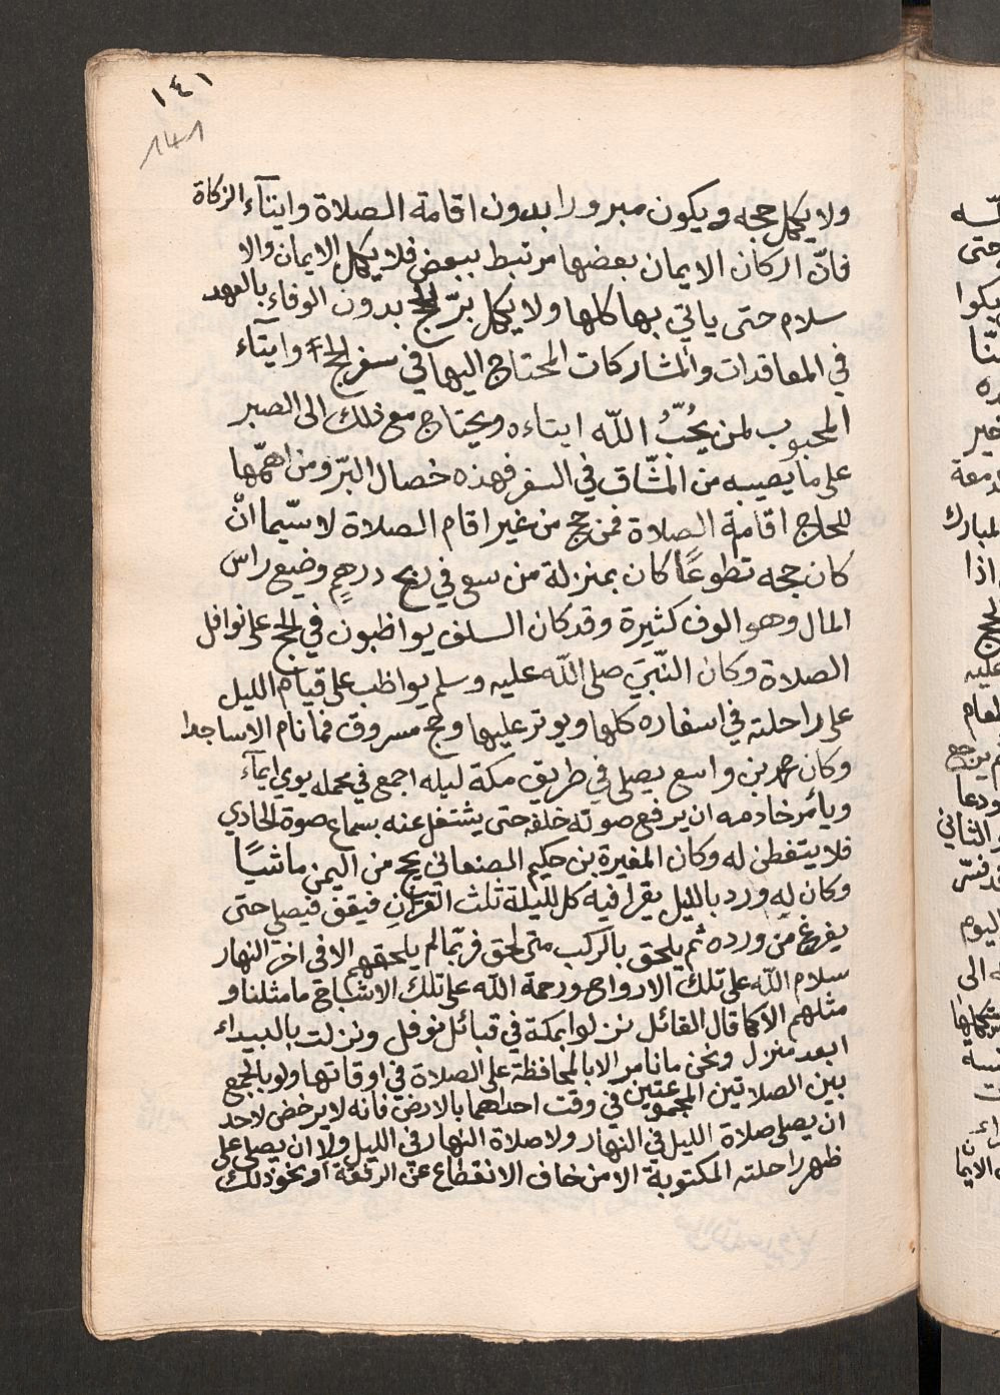 ١٤١
141
ولا يكمل حجه ويكون مبرورا بدون اقامة الصلاة وايتآء الزكاة
فانّ اركان الايمان بعضها مرتبط ببعض فلا يكمل الايمان والا
سلام حتى ياتي بها كلها ولا يكمل برّ الحج بدون الوفاء بالعهد
في المعاقدات والمشاركات المحتاج اليها في سفر الحج وايتآء
المحبوب لمن يُحبُّ اللّه ايتاءه ويحتاج مع ذلك الى الصبر
على ما يصيبه من المشّاق في السفر فهذه خصال البرّ ومن اهمّها
للحاج اقامة الصلاة فمن حج من غير اقام الصلاة لا سيّما انْ
كان حجه تطوعًا كان بمنزلة من سعى في ربح درهمٍ وضيع راس
المال وهو الوف كثيرة وقد كان السلف يواظبون في الحج على نوافل
الصلاة وكان النّبيّ صلى اللّه عليه وسلم يواظب على قيام الليل
على راحلته في اسفاره كلها ويوتر عليها وحج مسروق فما نام الا ساجدا
وكان محمد بن واسع يصلى في طريق مكة ليله اجمع في محمله يومي ايمآء
ويأمر خادمه ان يرفع صوته خلفه حتى يشتغل عنه بسماع صوة الحادي
فلا يتفطن له وكان المغيرة بن حكيم الصنعاني يحج من اليمن ماشيًا
وكان له ورد بالليل يقرا فيه كل لليلة ثلث القرآن فيقف فيصلي حتى
يفرغ من ورده ثم يلحق بالركب متى لحق فربّما لم يلحقهم الا في اخر النهار
سلام اللّه على تلك الارواح ورحمة اللّه على تلك الاشباح ما مثلنا و
مثلهم الا كما قال القائل نزلوا بمكة في قبائل نوفل ونزلت بالبيداء
ابعد منزل ونحن ما نامر الا بالمحافظة على الصلاة في اوقاتها ولو بالجمع
بين الصلاتين المجموعتين في وقت احداهما بالارض فانه لا يرخض لاحد
ان يصلى صلاة الليل في النهار ولا صلاة النهار في الليل ولا ان يصلى على
ظهر راحلته المكتوبة الا من خاف الانقطاع عن الرفقة او نحو ذلك